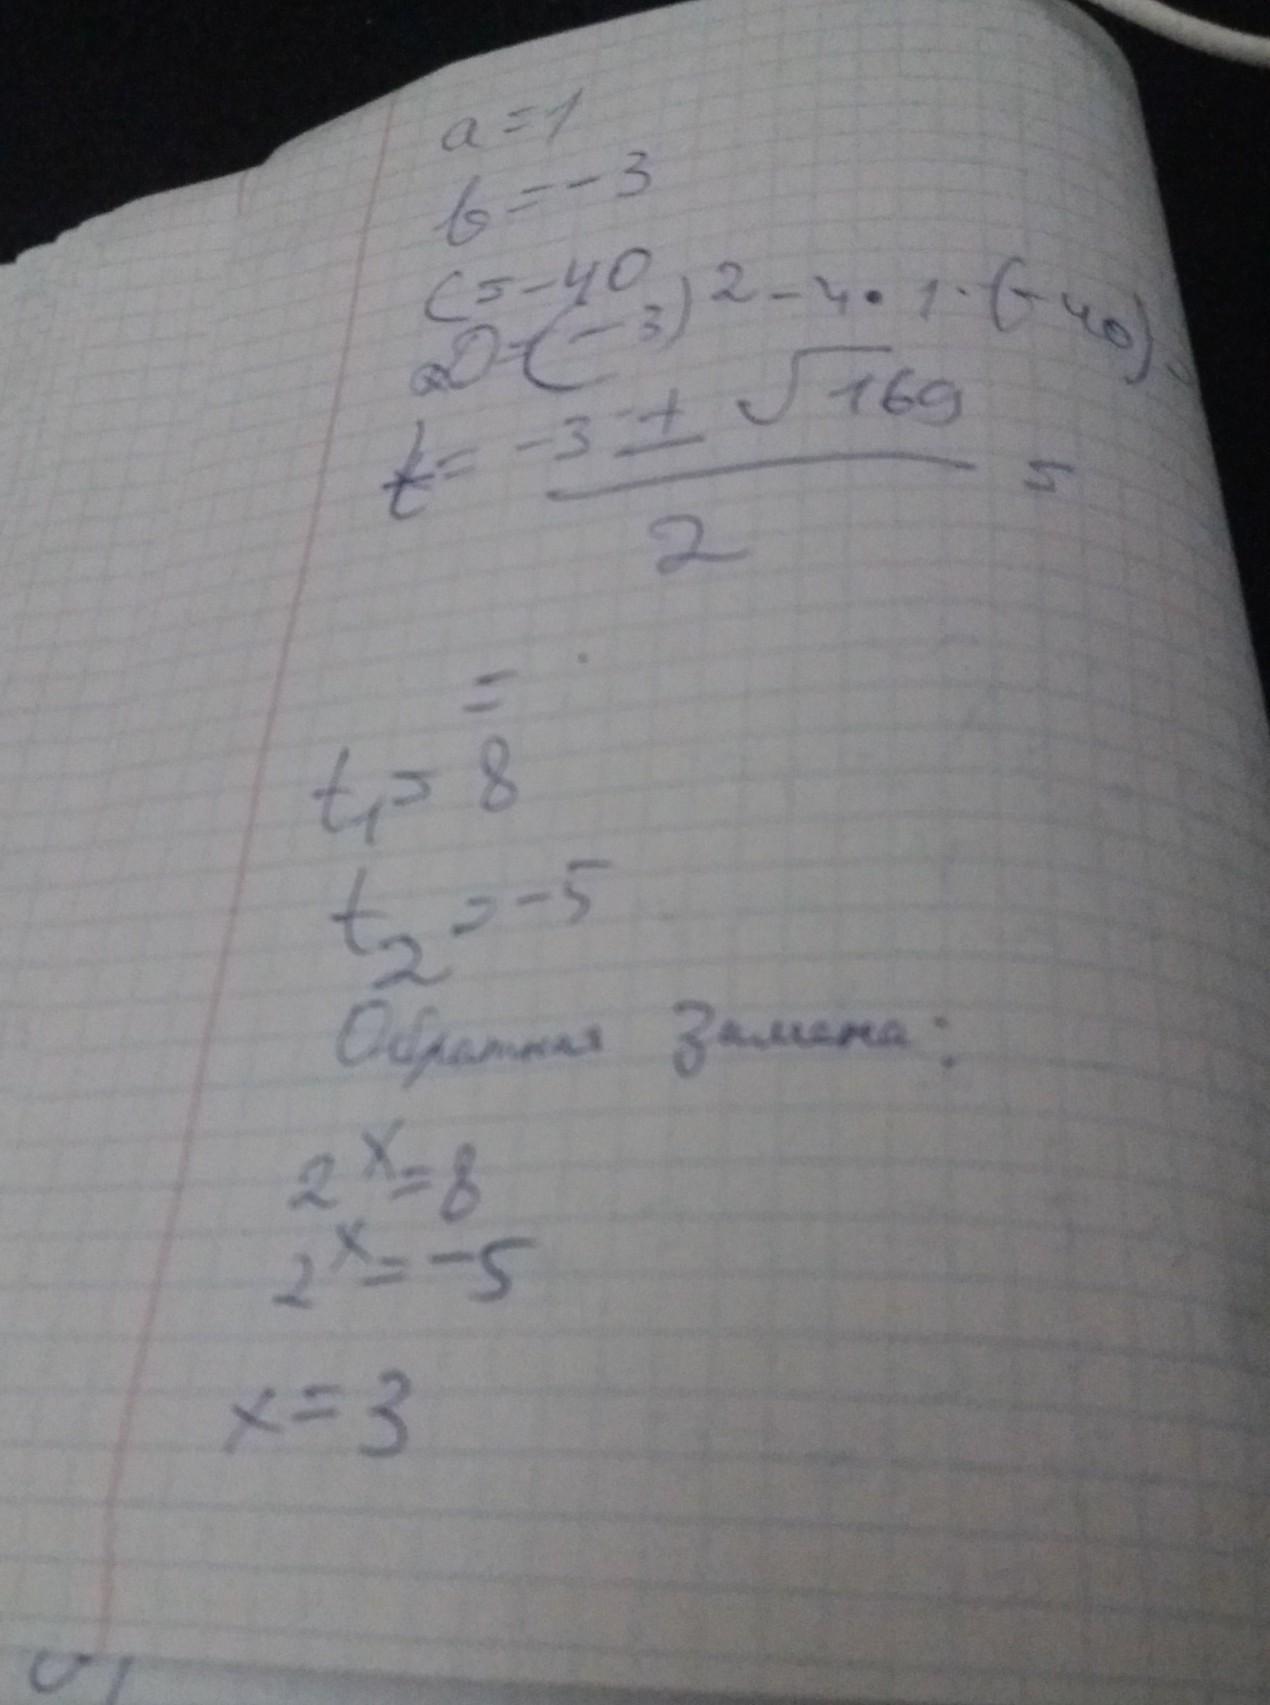 a = 1
b = -3
c = -40
D = (-3)2 - 4 • 1 · (-40) =
t = -3 ± √169 / 2 =
=
t1 = 8
t2 = -5
Обратная замена:
2^x = 8
2^x = -5
x = 3